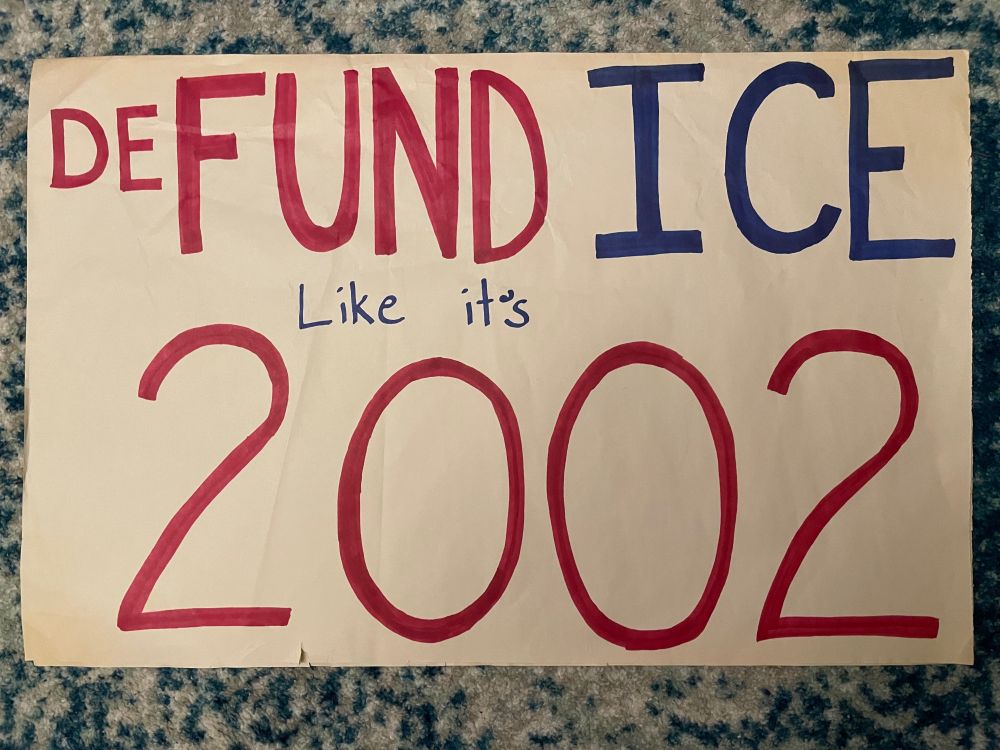 DEFUND ICE
Like it's
2002